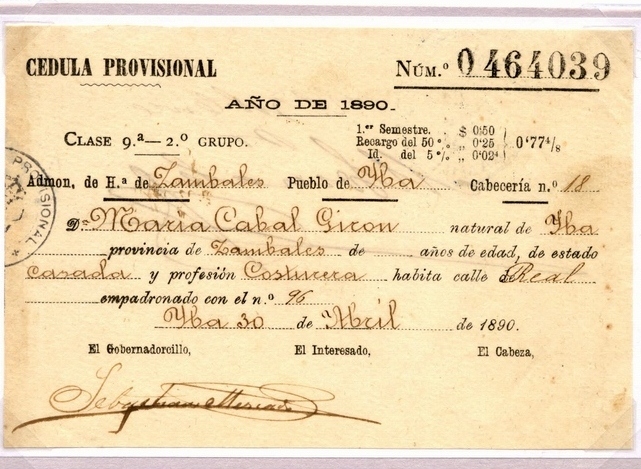 CEDULA PROVISIONAL NÚM.º 0464039
AÑO DE 1890.
CLASE 9.ª—2.º GRUPO.
1.er Semestre. $ 0'50
Recargo del 50 º/o „ 0'25 0'77 4/8
Id. del 5 º/o „ 0'02 4
Admon, de H.ª de Zambales Pueblo de Yba Cabecería n.º 18
D.ª Maria Cabal Giron natural de Yba
provincia de Zambales de años de edad, de estado
casada y profesión Costurera habita calle Real
empadronado con el n.º 96
Yba 30 de Abril de 1890.
El Gobernadorcillo, El Interesado, El Cabeza,
Sebastian
PROVISIONAL